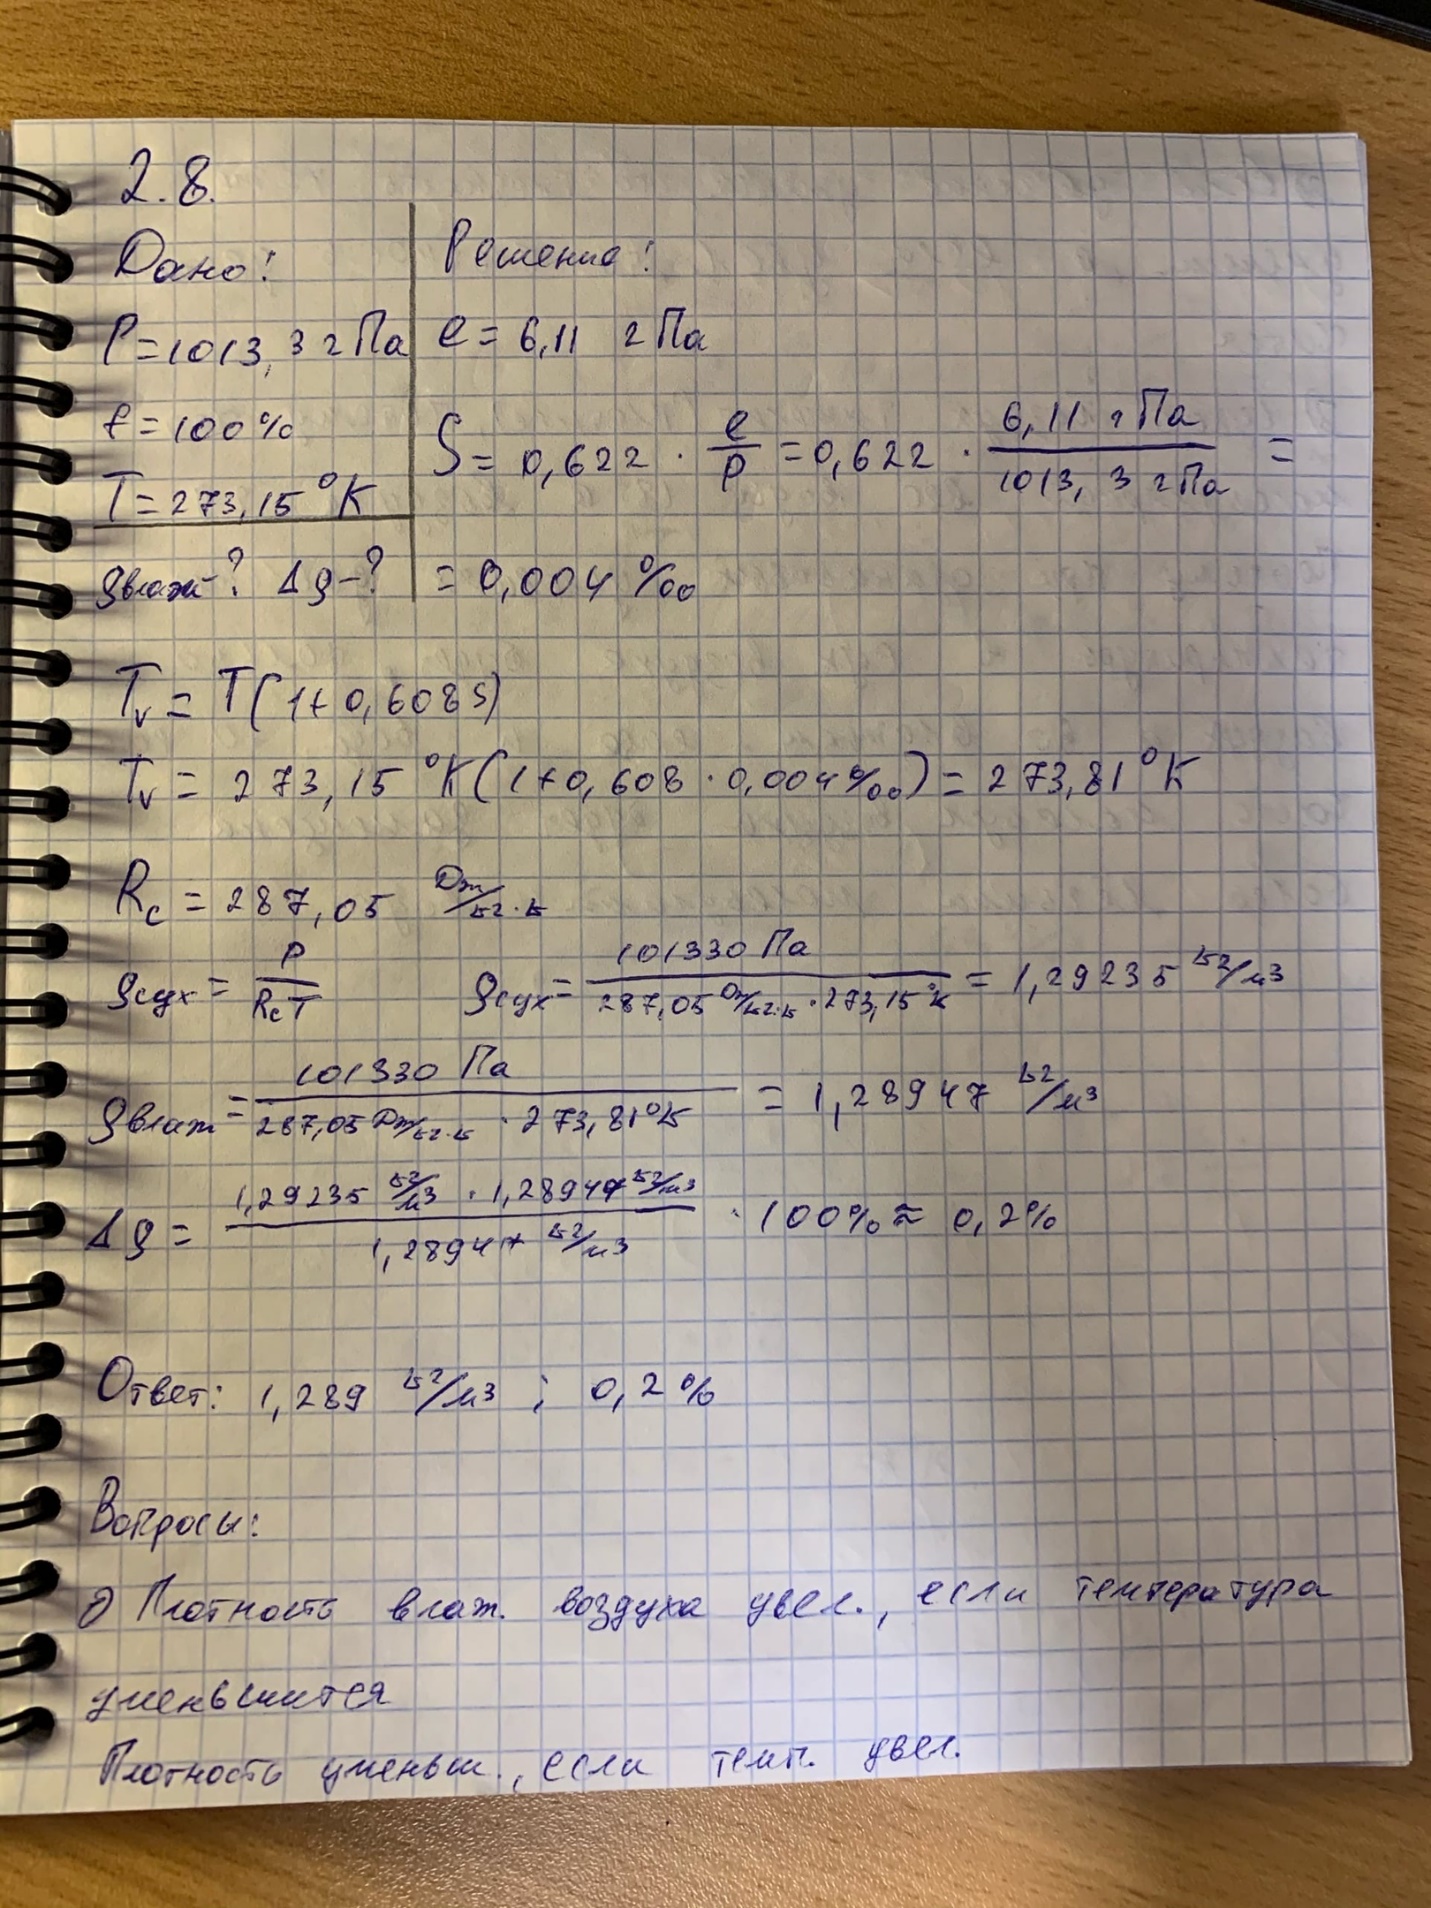 2.8.
Дано:
Решение:
P=1013,3 гПа
e = 6,11 гПа
f=100%
S = 0,622 · e/P = 0,622 · 6,11 гПа / 1013,3 гПа =
T=273,15 °K
ρвлаж-? Δρ-?
= 0,004 ‰
Tv = T(1+0,608s)
Tv = 273,15 °K(1+0,608 · 0,004‰) = 273,81 °K
Rc = 287,05 Дж/кг·К
ρсух = P/RcT ρсух = 101330 Па / 287,05 Дж/кг·К · 273,15 °К = 1,29235 кг/м3
ρвлаж = 101330 Па / 287,05 Дж/кг·К · 273,81°К = 1,28947 кг/м3
Δρ = 1,29235 кг/м3 · 1,28947 кг/м3 / 1,28947 кг/м3 · 100% ≈ 0,2%
Ответ: 1,289 кг/м3 ; 0,2%
Вопросы:
Плотность влаж. воздуха увел., если температура
уменьшится
Плотность уменьш., если темп. увел.